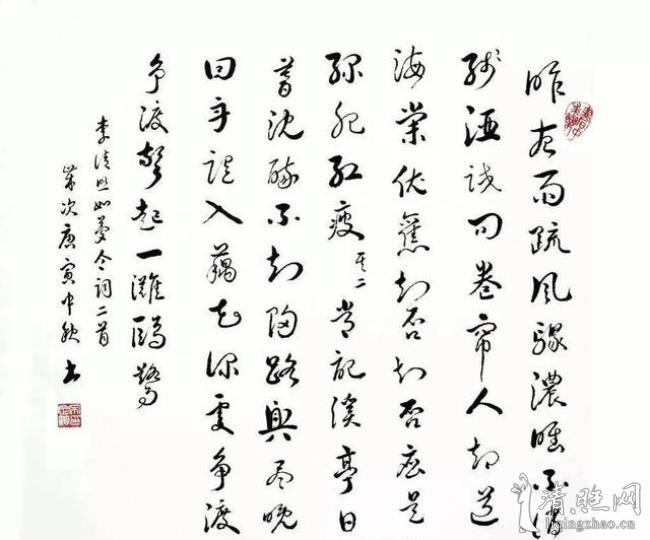 昨夜雨疏風驟濃睡不消
残酒试问卷帘人却道
海棠依舊知否知否应是
绿肥红瘦 其二 常記溪亭日
暮沈醉不知归路興尽晚
回舟误入藕花深處争渡
争渡驚起一灘鷗鷺
李清照如夢令词二首
歲次庚寅中秋 书
liqingzhao.cn